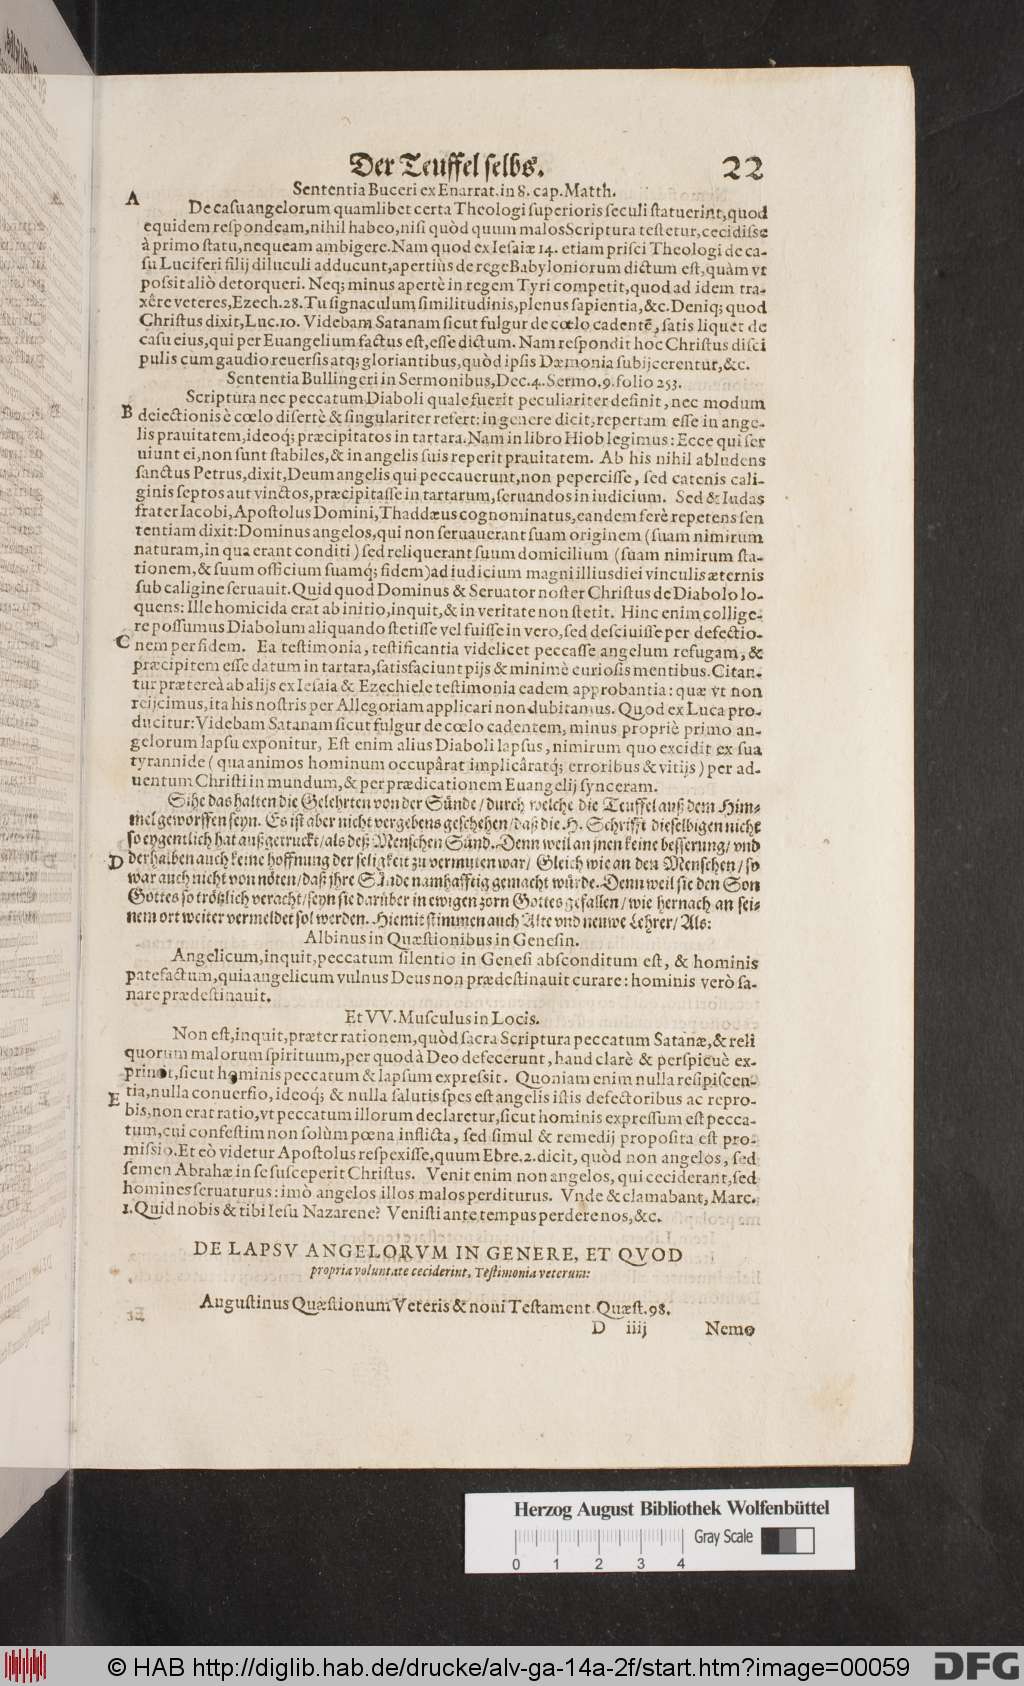 Der Teuffel selbs.
22
Sententia Buceri ex Enarrat. in 8. cap. Matth.
A
De casu angelorum quamlibet certa Theologi superioris seculi statuerint, quod
equidem respondeam, nihil habeo, nisi quòd quum malos Scriptura testetur, cecidisse
à primo statu, nequeam ambigere. Nam quod ex Iesaiæ 14. etiam prisci Theologi de ca-
su Luciferi filij diluculi adducunt, apertiùs de rege Babyloniorum dictum est, quàm vt
possit aliò detorqueri. Neq; minus apertè in regem Tyri competit, quod ad idem tra-
xêre veteres, Ezech. 28. Tu signaculum similitudinis, plenus sapientia, &c. Deniq; quod
Christus dixit, Luc. 10. Videbam Satanam sicut fulgur de cœlo cadentē, satis liquet de
casu eius, qui per Euangelium factus est, esse dictum. Nam respondit hoc Christus disci
pulis cum gaudio reuersis atq; gloriantibus, quòd ipsis Dæmonia subijcerentur, &c.
Sententia Bullingeri in Sermonibus, Dec. 4. Sermo. 9. folio 253.
Scriptura nec peccatum Diaboli quale fuerit peculiariter definit, nec modum
B
deiectionis è cœlo disertè & singulariter refert: in genere dicit, repertam esse in ange-
lis prauitatem, ideoq; præcipitatos in tartara. Nam in libro Hiob legimus: Ecce qui ser
uiunt ei, non sunt stabiles, & in angelis suis reperit prauitatem. Ab his nihil abludens
sanctus Petrus, dixit, Deum angelis qui peccauerunt, non pepercisse, sed catenis cali-
ginis septos aut vinctos, præcipitasse in tartarum, seruandos in iudicium. Sed & Iudas
frater Iacobi, Apostolus Domini, Thaddæus cognominatus, eandem ferè repetens sen
tentiam dixit: Dominus angelos, qui non seruauerant suam originem (suam nimirum
naturam, in qua erant conditi) sed reliquerant suum domicilium (suam nimirum sta-
tionem, & suum officium suamq; fidem) ad iudicium magni illius diei vinculis æternis
sub caligine seruauit. Quid quod Dominus & Seruator noster Christus de Diabolo lo-
quens: Ille homicida erat ab initio, inquit, & in veritate non stetit. Hinc enim collige-
re possumus Diabolum aliquando stetisse vel fuisse in vero, sed desciuisse per defectio-
C
nem per fidem. Ea testimonia, testificantia videlicet peccasse angelum refugam, &
præcipitem esse datum in tartara, satisfaciunt pijs & minimè curiosis mentibus. Citan-
tur prætereà ab alijs ex Iesaia & Ezechiele testimonia eadem approbantia: quæ vt non
reijcimus, ita his nostris per Allegoriam applicari non dubitamus. Quod ex Luca pro-
ducitur: Videbam Satanam sicut fulgur de cœlo cadentem, minus propriè primo an-
gelorum lapsu exponitur, Est enim alius Diaboli lapsus, nimirum quo excidit ex sua
tyrannide (qua animos hominum occupârat implicâratq; erroribus & vitijs) per ad-
uentum Christi in mundum, & per prædicationem Euangelij synceram.
Sihe das halten die Gelehrten von der Sünde / durch welche die Teuffel auß dem Him-
mel geworffen seyn. Es ist aber nicht vergebens geschehen / daß die H. Schrifft dieselbigen nicht
so eygentlich hat außgetruckt / als deß Menschen Sünd. Denn weil an jnen keine besserung / vnd
D
derhalben auch keine hoffnung der seligkeit zu vermuten war / Gleich wie an den Menschen / so
war auch nicht von nöten / daß jhre Sünde namhafftig gemacht würde. Denn weil sie den Son
Gottes so trötzlich veracht / seyn sie darüber in ewigen zorn Gottes gefallen / wie hernach an sei-
nem ort weiter vermeldet sol werden. Hiemit stimmen auch Alte vnd neuwe Lehrer / Als:
Albinus in Quæstionibus in Genesin.
Angelicum, inquit, peccatum silentio in Genesi absconditum est, & hominis
patefactum, quia angelicum vulnus Deus non prædestinauit curare: hominis verò sa-
nare prædestinauit.
Et VV. Musculus in Locis.
Non est, inquit, præter rationem, quòd sacra Scriptura peccatum Satanæ, & reli
quorum malorum spirituum, per quod à Deo defecerunt, haud clarè & perspicuè ex-
primit, sicut hominis peccatum & lapsum expressit. Quoniam enim nulla resipiscen-
E
tia, nulla conuersio, ideoq; & nulla salutis spes est angelis istis defectoribus ac repro-
bis, non erat ratio, vt peccatum illorum declaretur, sicut hominis expressum est pecca-
tum, cui confestim non solùm pœna inflicta, sed simul & remedij proposita est pro-
missio. Et eò videtur Apostolus respexisse, quum Ebre. 2. dicit, quòd non angelos, sed
semen Abrahæ in se susceperit Christus. Venit enim non angelos, qui ceciderant, sed
homines seruaturus: imò angelos illos malos perditurus. Vnde & clamabant, Marc.
1. Quid nobis & tibi Iesu Nazarene? Venisti ante tempus perdere nos, &c.
DE LAPSV ANGELORVM IN GENERE, ET QVOD
propria voluntate ceciderint, Testimonia veterum:
Augustinus Quæstionum Veteris & noui Testament. Quæst. 98.
D iiij
Nemo
Herzog August Bibliothek Wolfenbüttel
Gray Scale
0 1 2 3 4
© HAB http://diglib.hab.de/drucke/alv-ga-14a-2f/start.htm?image=00059
DFG